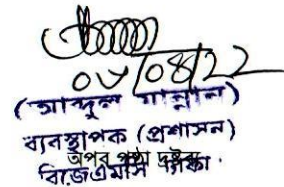 ০৮/০৪/২২
(আব্দুল মান্নান)
ব্যবস্থাপক (প্রশাসন)
অপর পৃষ্ঠা দ্রষ্টব্য
বিজেএমসি ঢাকা